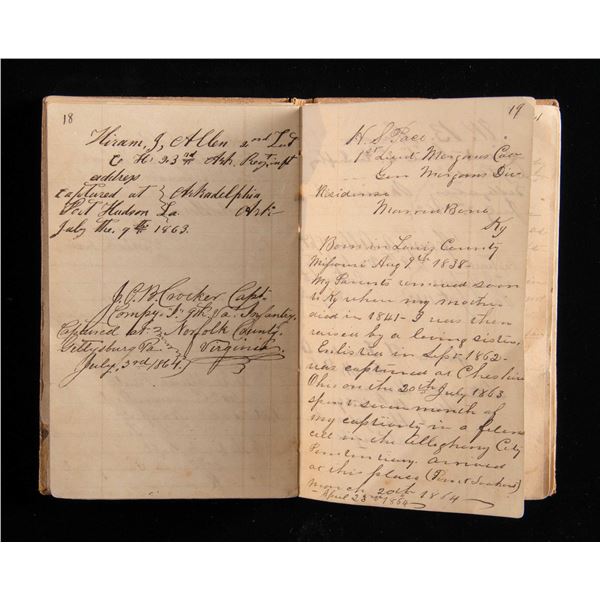 18
Hiram, J, Allen 2nd Lut
Co H. 23rd Ark. Regt inft
address
captured at } Arkadelphia
Port Hudson La. Ark.
July the, 9th 1863.
J. C. B. Crocker Capt.
Compy. I. 9th Va. Infantry,
Captured at Norfolk County,
Gettysburg Va Virginia.
July, 3rd 1864.
19
H. S. Pace.
1st Lieut. Morgans Cav
Gen Morgans Div
Residense
Ky
Born in Lewis County
Missouri Aug 9th 1838-
My Parents removed soon
to Ky when my mother
died in 1841- I was then
raised by a loving sister,
Enlisted in Sept 1862-
was captured at Cheshire
Ohio on the 20th July 1863
spent seven month of
my captivity in a felons
cell in the Allegheny City
Penitentiary. arrived
at this place (Point Lookout)
March 20th 1864
April 23rd 1864